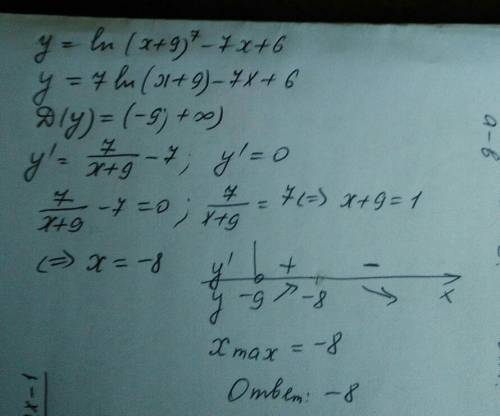 y = ln (x+9)⁷ - 7x + 6
y = 7 ln(x+9) - 7x + 6
D(y) = (-9; +∞)
y' = 7/(x+9) - 7; y' = 0
7/(x+9) - 7 = 0; 7/(x+9) = 7 (=> x+9 = 1
(=> x = -8
y' + -
y -9 ↗ -8 ↘ x
x max = -8
Ответ: -8
a-b
x=1